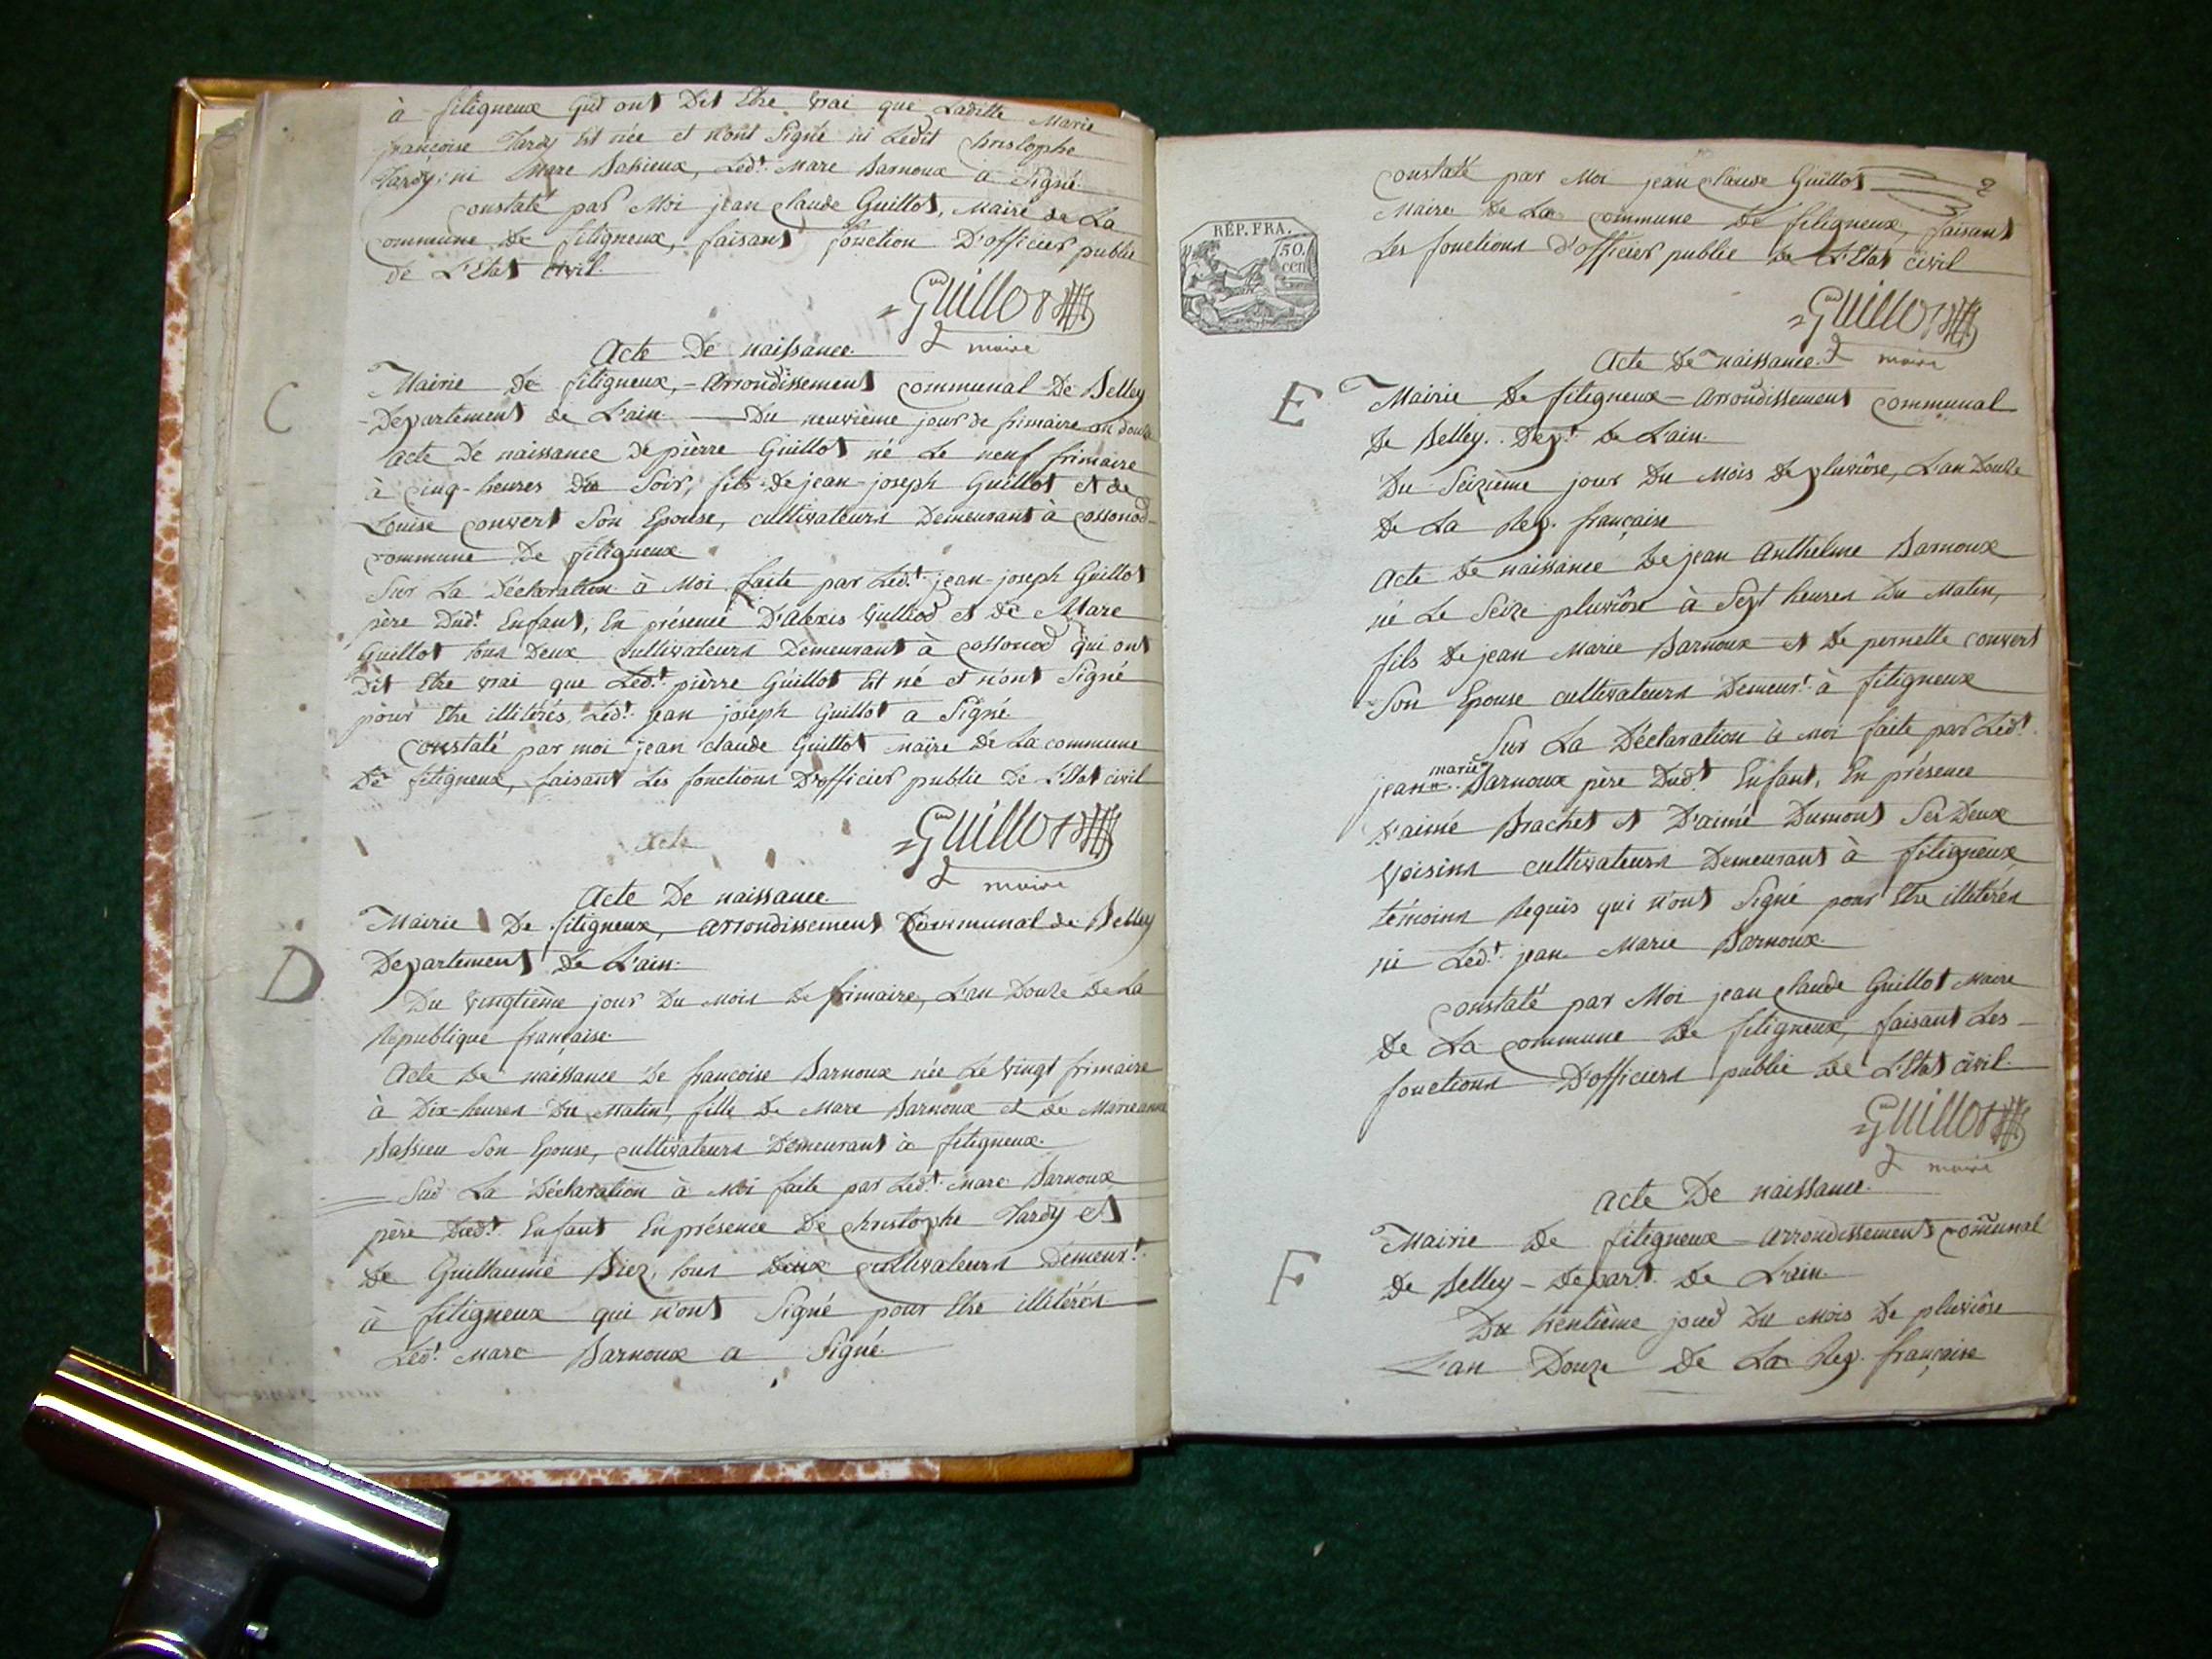 à fitigneux qui ont Dit Etre vrai que Laditte Marie
françoise Tardy Est née et n'ont Signé ni Ledit Christophe
Tardy, ni Marc Bassieux, Led.t Marc Barnoux a Signé.
Constaté par Moi jean Claude Guillot, Maire de La
Commune De fitigneux, faisant fonction D'officier public
de L'Etat Civil.
Guillot
maire
Acte De naissance.
C
Mairie de fitigneux, arrondissement Communal De Belley
Departement de L'ain. — Du neuvième jour de frimaire an douze
Acte De naissance de pièrre Guillot né Le neuf frimaire
à Cinq-heures Du Soir, fils de jean-joseph Guillot et de
Louise Convert Son Epouse, cultivateurs Demeurant à Cossonod
commune De fitigneux.
Sur La Déclaration à Moi faite par Led.t jean-joseph Guillot
père Dud.t Enfant, En présence D'Alexis Vulliod et de Marc
Guillot tous Deux Cultivateurs Demeurant à Cossonod qui ont
Dit Etre vrai que Led.t pièrre Guillot Est né et n'ont Signé
pour Etre illitérés, Led.t jean joseph Guillot a Signé.
Constaté par moi jean claude Guillot maire De La commune
De fitigneux, faisant Les fonctions D'officier public De L'Etat civil
Guillot
maire
Acte
Acte De naissance.
D
Mairie De fitigneux, arrondissement Communal de Belley
Departement De L'ain.
Du vingtième jour Du Mois De frimaire, L'an Douze De La
République française.
Acte De naissance De françoise Barnoux née Le vingt frimaire
à Dix-heures Du Matin, fille De Marc Barnoux et De Marieanne
Bassieu Son Epouse, cultivateurs Demeurant à fitigneux.
Sur La Déclaration à Moi faite par Led.t Marc Barnoux
père Dud.t Enfant En présence De Christophe Tardy et
De Guillaume Biez, tous Deux cultivateurs Demeur.t
à fitigneux qui n'ont Signé pour Etre illitérés
Led.t Marc Barnoux a Signé.
2
Constaté par Moi jean Claude Guillot
Maire De La Commune De fitigneux, faisant
Les fonctions d'officier public De L'Etat civil
RÉP. FRA.
50.
cen
Guillot
maire
Acte De naissance.
E
Mairie De fitigneux - arrondissement Communal
De Belley. Dep.t De L'ain.
Du Seizième jour Du Mois De pluviôse, L'an Douze
De La Rep. française
Acte De naissance De jean Anthelme Barnoux
né Le Seize pluviôse à Sept heures Du Matin,
fils De jean Marie Barnoux et De pernette Convert
Son Epouse cultivateurs Demeur.t à fitigneux
Sur La Déclaration à Moi faite par Led.t
marie
jean Barnoux père Dud.t Enfant, En présence
D'aimé Brachet et D'aimé Dumont Ses Deux
Voisins cultivateurs Demeurant à fitigneux
témoins Requis qui n'ont Signé pour Etre illitérés
ni Led.t jean Marie Barnoux.
Constaté par Moi jean Claude Guillot Maire
De La Commune De fitigneux, faisant Les
fonctions D'officiers public De L'Etat civil.
Guillot
maire
Acte De naissance.
F
Mairie De fitigneux - arrondissement Com̃unal
De Belley - Depart. De L'ain.
Du trentième jour Du Mois De pluviôse
L'an Douze De La Rep. française